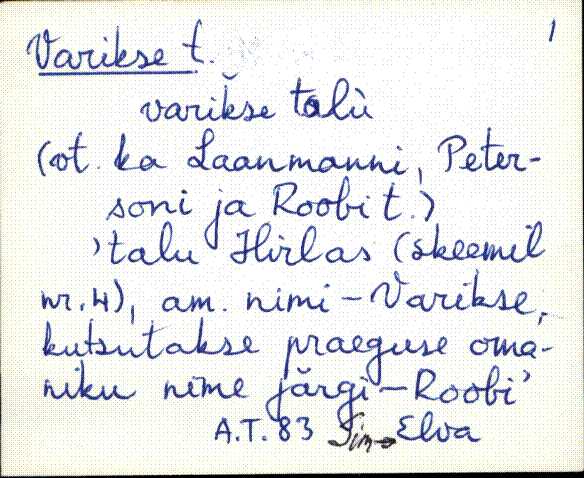 1
Varikse t.
varikse talù
(vt. ka Laanmanni, Peter-
soni ja Roobi t.)
'talu Hirlas (skeemil
nr. 4), am. nimi - Varikse,
kutsutakse praeguse oma-
niku nime järgi - Roobi'
A.T. 83 Sim → Elva